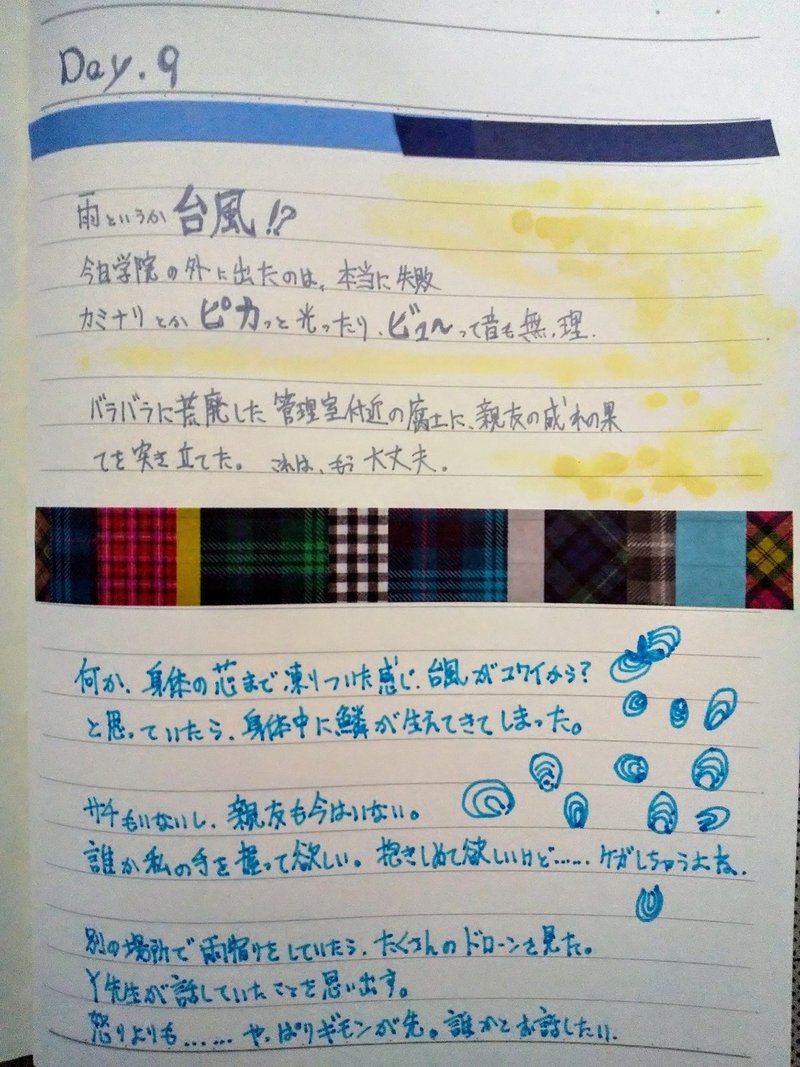 Day.9
雨というか台風!?
今日学院の外に出たのは、本当に失敗
カミナリとかピカっと光ったり、ビューって音も無,理.
バラバラに荒廃した管理室付近の腐土に、親友の成れの果
てを突き立てた。これは、もう大丈夫。
何か、身体の芯まで凍りついた感じ、台風がコワイから?
と思っていたら、身体中に鱗が生えてきてしまった。
サチもいないし、親友も今はいない。
誰か私の手を握って欲しい。抱きしめて欲しいけど…… ケガしちゃうよね、
別の場所で雨宿りをしていたら、たくさんのドローンを見た。
Y先生が話していたことを思い出す。
怒りよりも……やっぱりギモンが先。誰かとお話したい.